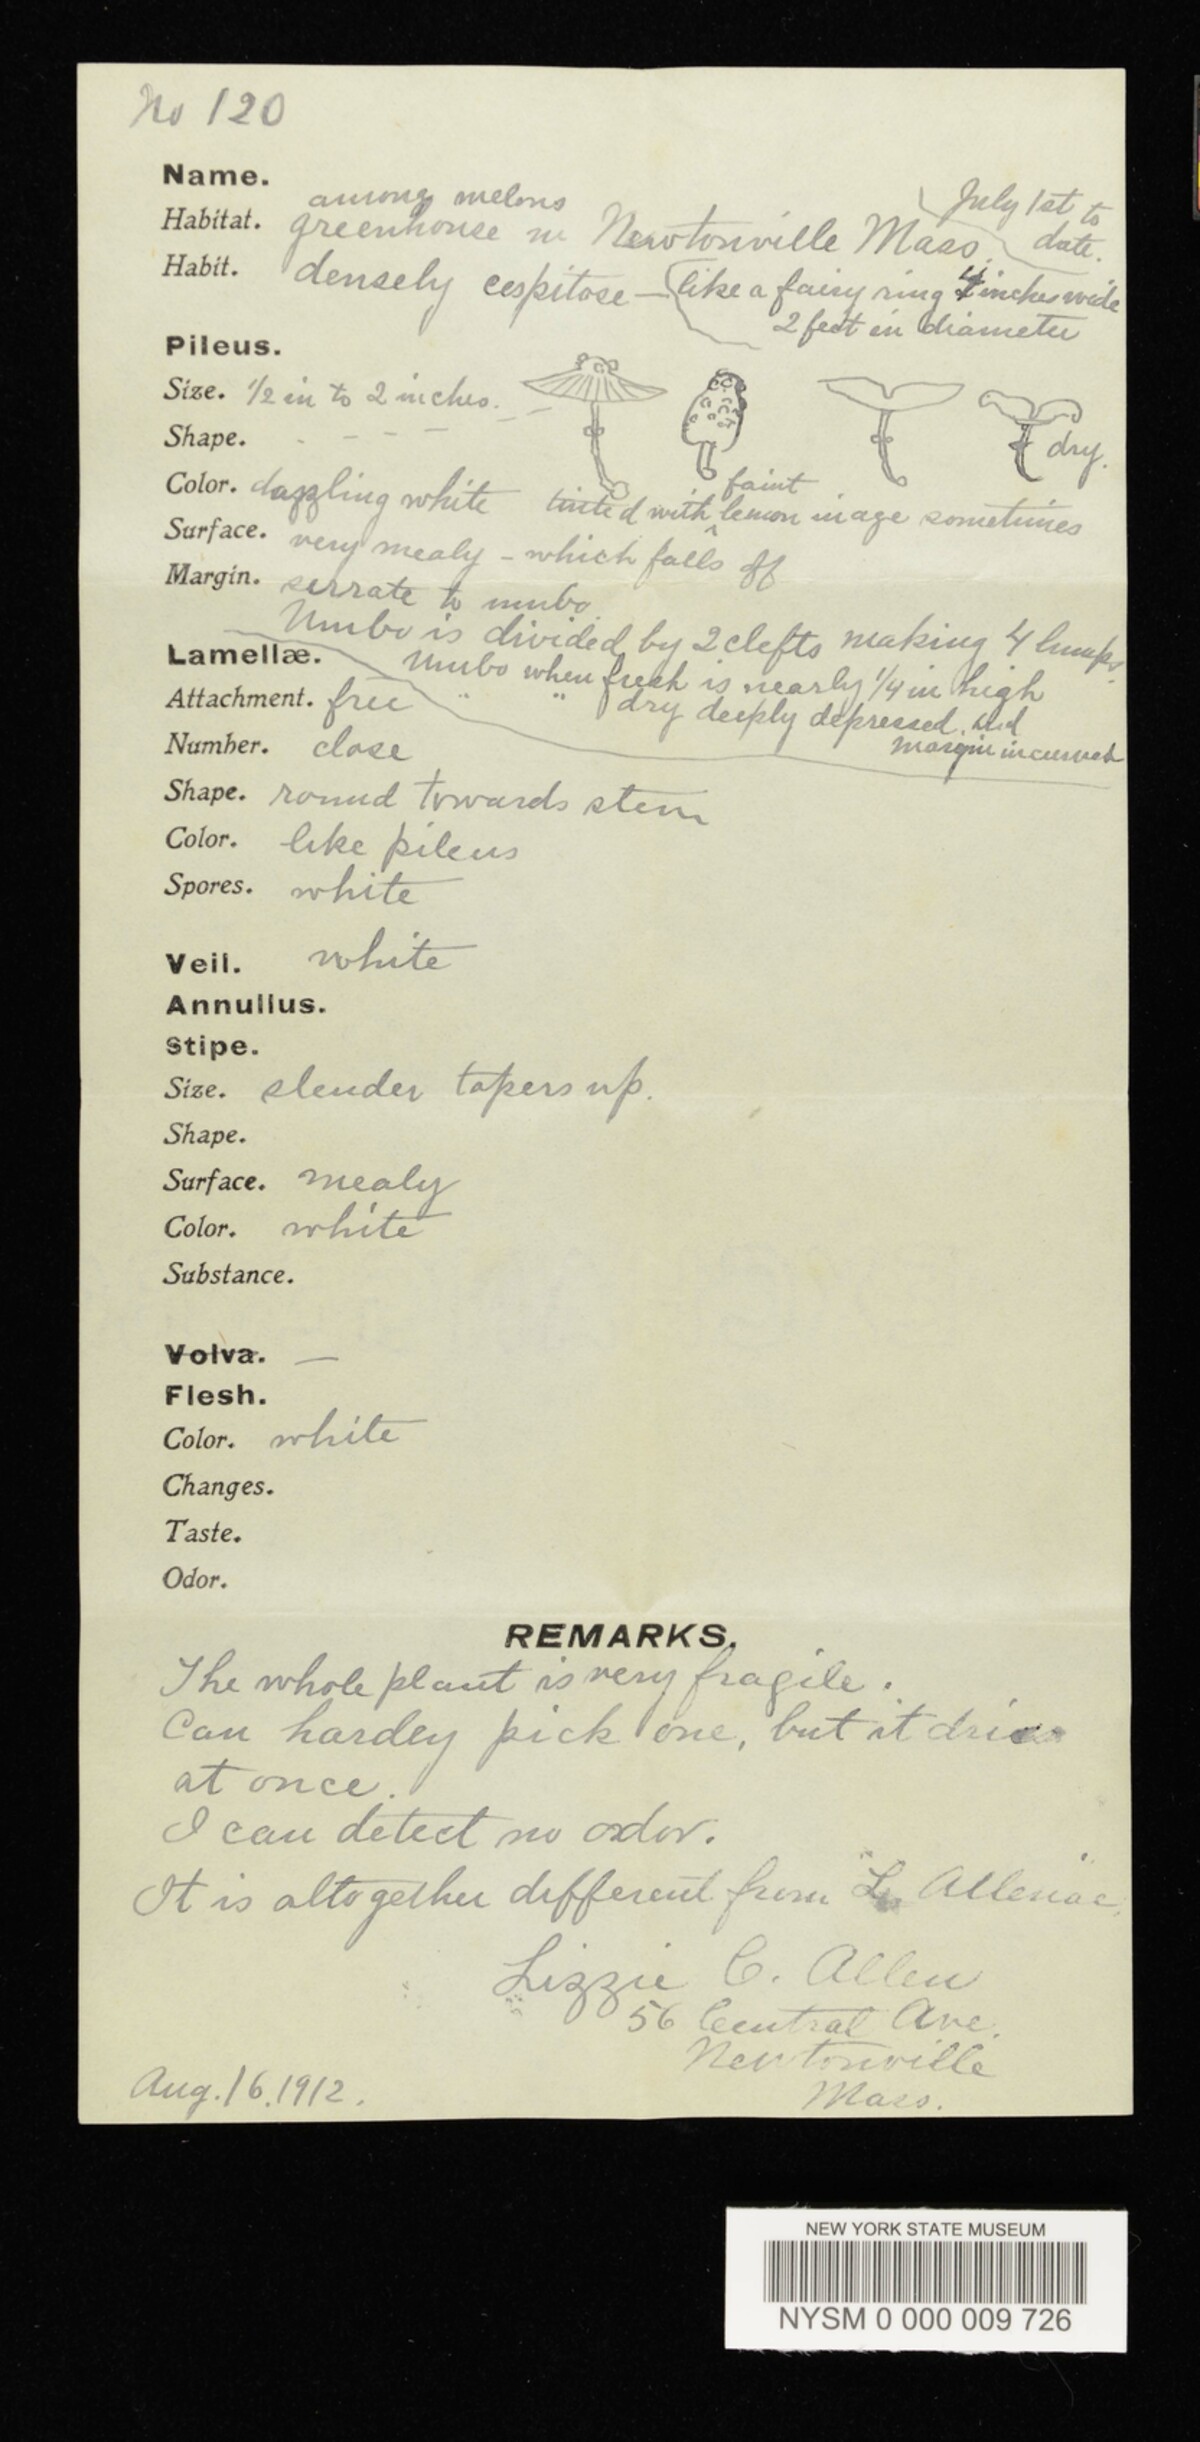 No 120
Name.
among melons
Habitat. greenhouse in Newtonville Mass. July 1st to
date.
Habit. densely cespitose — like a fairy ring 4 inches wide
2 feet in diameter
Pileus.
Size. 1/2 in to 2 inches.
Shape. dry.
faint
Color. dazzling white tinted with ^ lemon in age sometimes
Surface. very mealy - which falls off
Margin. serrate to umbo.
Umbo is divided by 2 clefts making 4 lumps.
Lamellæ. Umbo when fresh is nearly 1/4 in high
Attachment. free " " dry deeply depressed, and
margin incurved
Number. close
Shape. round towards stem
Color. like pileus
Spores. white
Veil. white
Annullus.
Stipe.
Size. slender tapers up.
Shape.
Surface. mealy
Color. white
Substance.
Volva. —
Flesh.
Color. white
Changes.
Taste.
Odor.
REMARKS.
The whole plant is very fragile.
Can hardly pick one, but it dries
at once.
I can detect no odor.
It is altogether different from "L. Allenae."
Lizzie C. Allen
56 Central Ave.
Newtonville
Mass.
Aug. 16. 1912.
NEW YORK STATE MUSEUM
NYSM 0 000 009 726